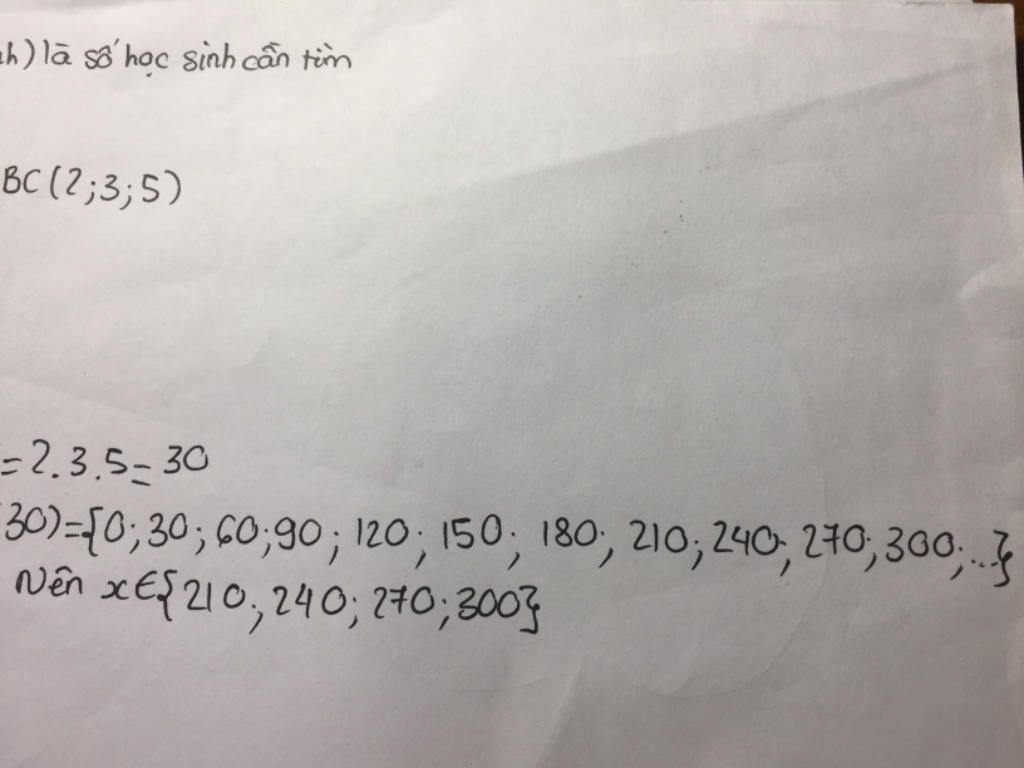 nh) là số học sinh cần tìm
BC (2;3;5)
= 2.3.5 = 30
(30)={0;30;60;90;120;150;180;210;240;270;300;...}
Nên x∈{210;240;270;300}